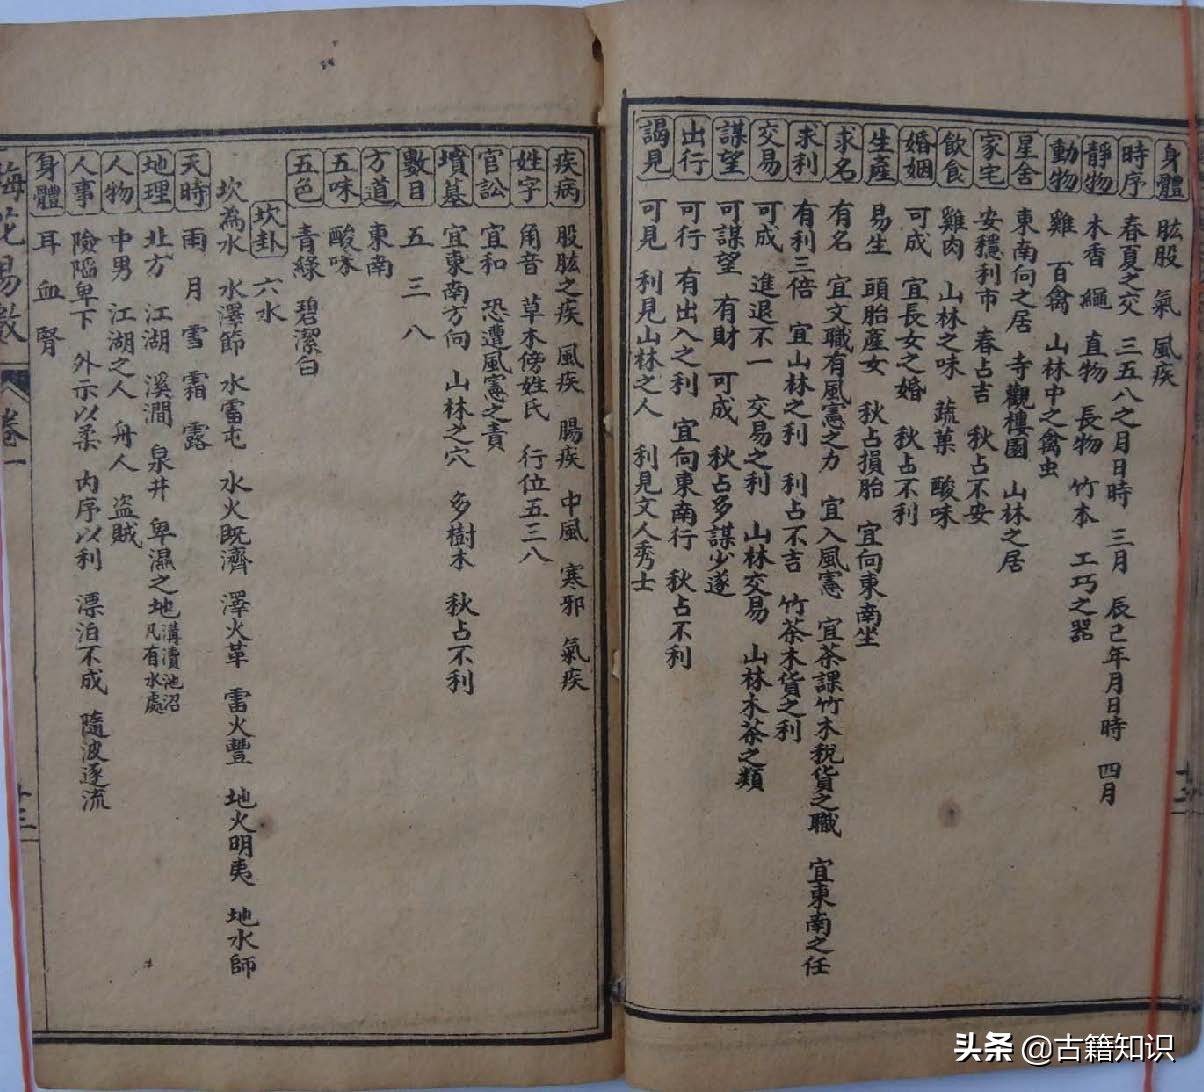 身體 肱股 氣 風疾
時序 春夏之交 三五八之月日時 三月 辰己年月日時 四月
靜物 木香 繩 直物 長物 竹木 工巧之器
動物 雞 百禽 山林中之禽虫
星舍 東南向之居 寺觀樓園 山林之居
家宅 安穩利市 春占吉 秋占不安
飲食 雞肉 山林之味 蔬菓 酸味
婚姻 可成 宜長女之婚 秋占不利
生產 易生 頭胎產女 秋占損胎 宜向東南坐
求名 有名 宜文職有風憲之力 宜入風憲 宜茶課竹木稅貨之職 宜東南之任
求利 有利三倍 宜山林之利 利占不吉 竹茶木貨之利
交易 可成 進退不一 交易之利 山林交易 山林木茶之類
謀望 可謀望 有財 可成 秋占多謀少遂
出行 可行 有出入之利 宜向東南行 秋占不利
謁見 可見 利見山林之人 利見文人秀士
疾病 股肱之疾 風疾 腸疾 中風 寒邪 氣疾
姓字 角音 草木傍姓氏 行位五三八
官訟 宜和 恐遭風憲之責
墳墓 宜東南方向 山林之穴 多樹木 秋占不利
數目 五 三 八
方道 東南
五味 酸味
五色 青綠 碧潔白
坎卦 六水
坎為水 水澤節 水雷屯 水火既濟 澤火革 雷火豐 地火明夷 地水師
天時 雨 月 雪 霜 露
地理 北方 江湖 溪澗 泉井 卑濕之地 溝瀆池沼凡有水處
人物 中男 江湖之人 舟人 盜賊
人事 險陷卑下 外示以柔 內序以利 漂泊不成 隨波逐流
身體 耳 血 腎
梅花易數 卷一
十三
头条 @古籍知识